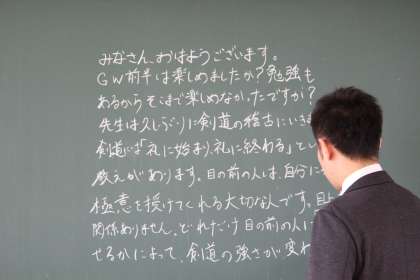 みなさん、おはようございます。
GW前半は楽しめましたか？勉強も
あるからそこまで楽しめなかったですか？
先生は久しぶりに剣道の稽古にいき
剣道には「礼に始まり、礼に終わる」とい
教えがあります。目の前の人は、自分に
極意を授けてくれる大切な人です。目
関係ありません、どれだけ目の前の人に
せるかによって、剣道の強さが変わ